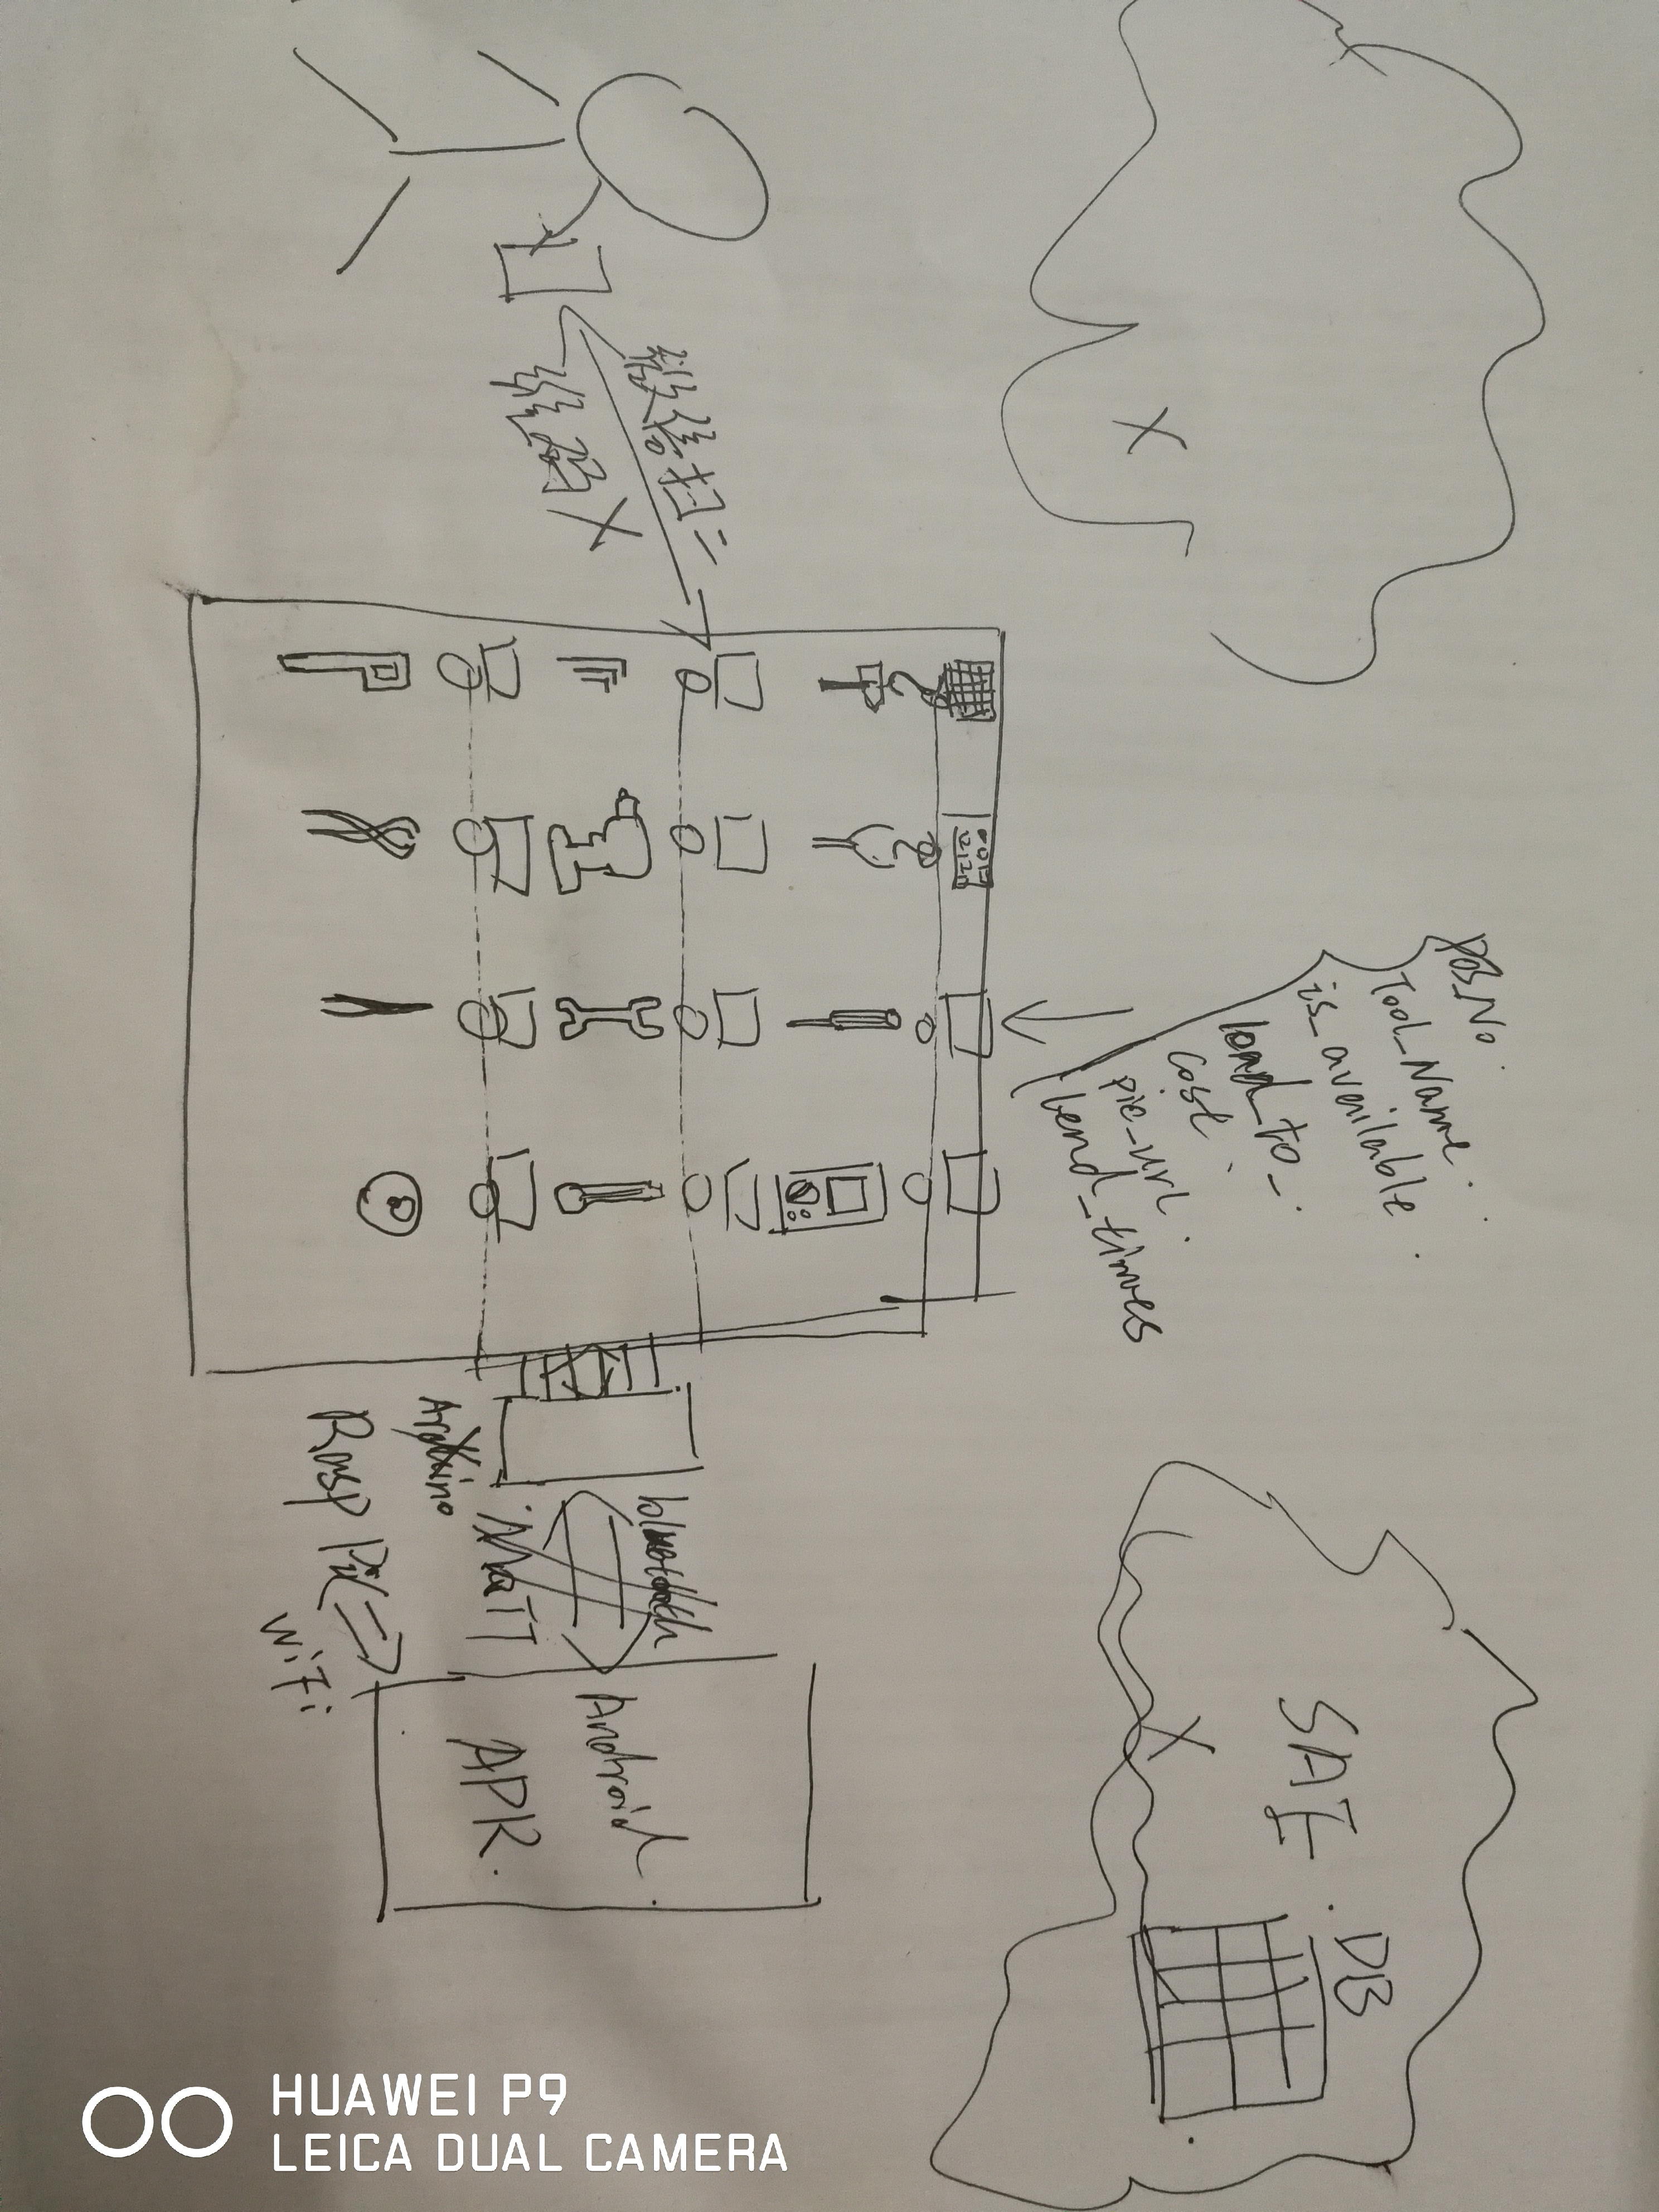 微信扫二
维码
Pos_No.
Tool_Name.
is_available
lend_to_
cost.
pic_url
lend_times
Arduino
bluetooth
Rasp Pi
WiFi
Android
APK.
SAE.
DB
HUAWEI P9
LEICA DUAL CAMERA